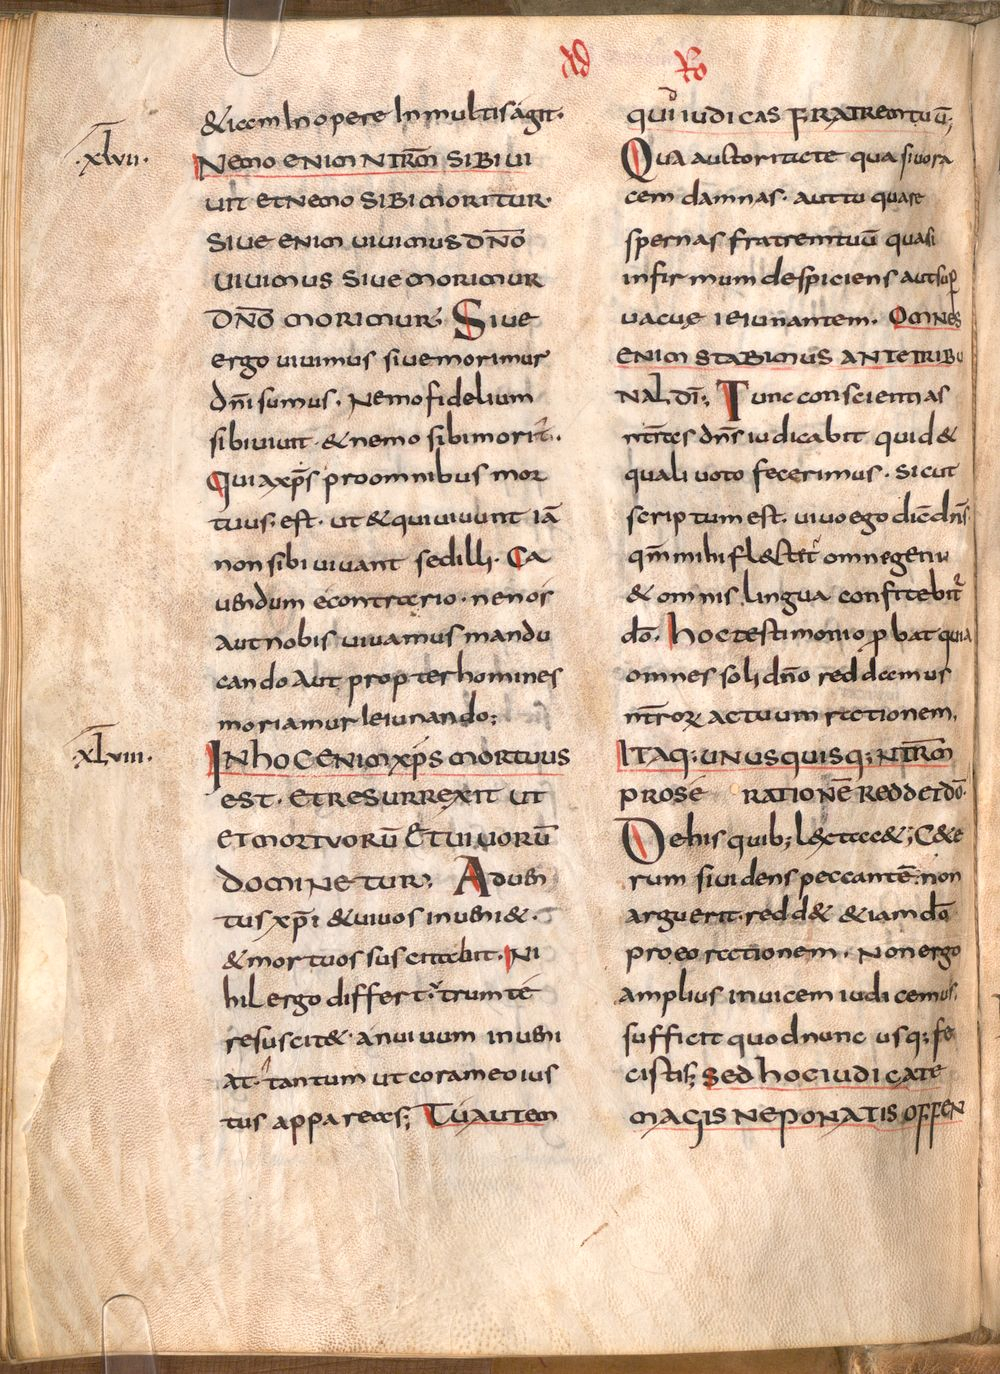 Ad Ro
&iam In opere In multis agit·
·xlvii·
Nemo enim nr̄m sibi ui
uit et nemo sibi moritur·
siue enim uiuimus dn̄o
uiuimus siue morimur
dn̄o morimur; Siue
ergo uiuimus siue morimur
dn̄i sumus · Nemo fidelium
sibi uiuit · & nemo sibi morit᷑.
Quia xp̄s pro omnibus mor
tuus; est · ut & qui uiuunt iā
non sibi uiuant sed illi · Ca
uendum e contrario · ne nos
aut nobis uiuamus mandu
cando aut propter homines
moriamur ieiunando;
·xlviii·
In hoc enim xp̄s mortuus
est · et resurrexit ut
et mortuorū & uiuorū
dominetur; Aduen
tus xp̄i & uiuos inueni& ·
& mortuos suscitabit · Ni
hil ergo differt · utrum te
resuscit& · an uiuum inueni
at · tantum ut coram eo ius
tus appareas; Tu autem
quid iudicas fratrem tuū;
Qua auctoritate qua si uora
cem damnas · aut tu quare
spernas fratrem tuū quasi
infirmum despiciens aut suꝑ
uacue ieiunantem · Omnes
enim stabimus ante tribu
nal dī; Tunc conscientias
nr̄as dn̄s iudicabit quid &
quali uoto fecerimus · Sicut
scriptum est · uiuo ego dic̄ dn̄s
qm̄ mihi flectet᷑ omne genu
& omnis lingua confitebit᷑
dō · hoc testimonio ꝓbat quia
omnes soli dn̄o reddemus
nr̄orꝝ actuum rationem,
Itaq; unusquisq; nr̄m
pro se rationē reddet dō·
De his quib; l& tacc&; C&e
rum si uidens peccantē non
arguerit · redd& & iam dō
pro eo rationem · Non ergo
amplius inuicem iudicemus
sufficit quod nunc usq; fe
cistis; sed hoc iudicate
magis ne ponatis offen